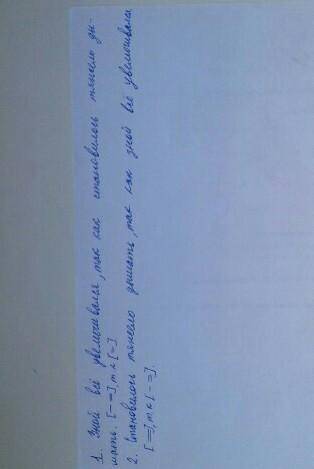 1. Зной всё увеличивался, так как становилось тяжело ды-
шать. [- =], т.к [-]
2. Становилось тяжело дышать, так как зной всё увеличивался
[=], т.к [- =]